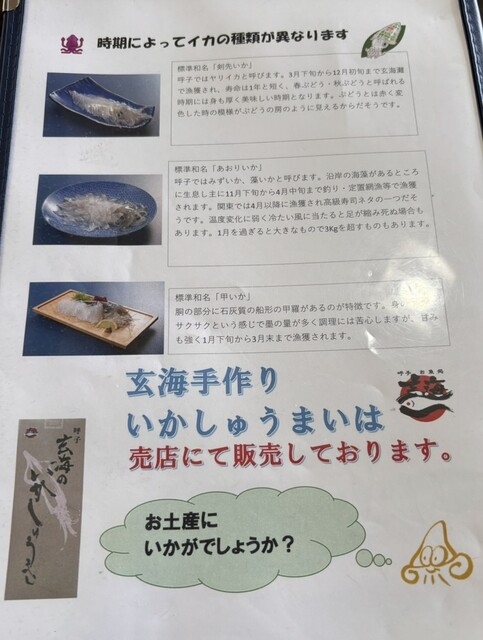 時期によってイカの種類が異なります
標準和名「剣先いか」
呼子ではヤリイカと呼びます。3月下旬から12月初旬まで玄海灘
で漁獲され、寿命は1年と短く、春ぶどう・秋ぶどうと呼ばれる
時期には身も厚く美味しい時期となります。ぶどうとは赤く変
色した時の模様がぶどうの房のように見えるからだそうです。
標準和名「あおりいか」
呼子ではみずいか、藻いかと呼びます。沿岸の海藻があるところ
に生息し主に11月下旬から4月中旬まで釣り・定置網漁等で漁獲
されます。関東では4月以降に漁獲され高級寿司ネタの一つだそ
うです。温度変化に弱く冷たい風に当たると足が縮み死ぬ場合も
あります。1月を過ぎると大きなもので3Kgを超すものもあります。
標準和名「甲いか」
胴の部分に石灰質の船形の甲羅があるのが特徴です。
サクサクという感じで墨の量が多く調理には苦心しますが、甘み
も強く1月下旬から3月末まで漁獲されます。
玄海手作り
いかしゅうまいは
売店にて販売しております。
呼子 お魚処
玄海
呼子
玄海の
いかしゅうまい
お土産に
いかがでしょうか？